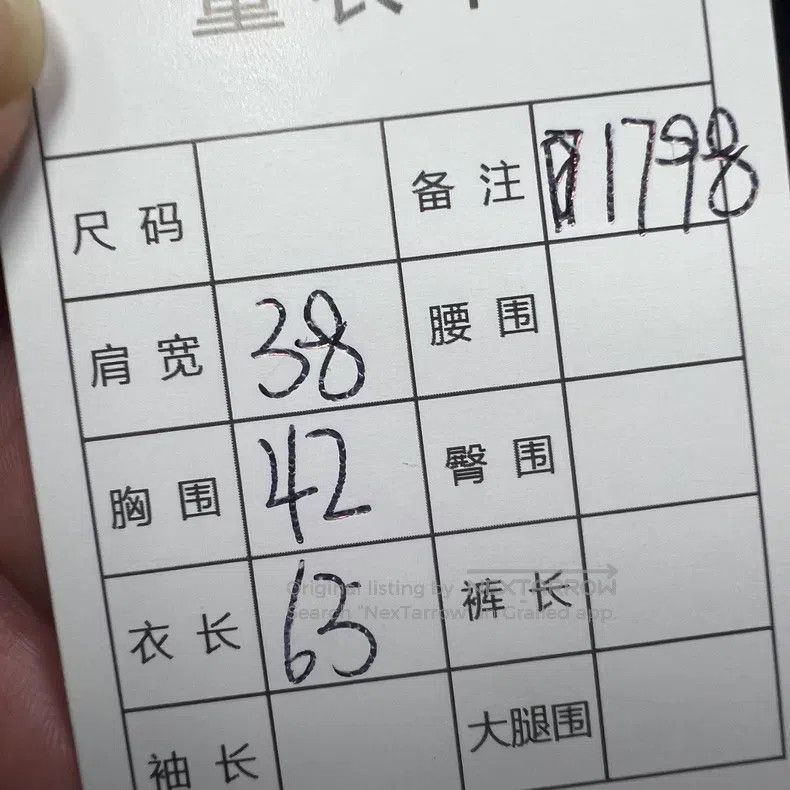 量衣卡
尺码 备注 01798
肩宽 38 腰围
胸围 42 臀围
衣长 63 裤长
Original listing by NEXTARROW
Search "NexTarrow" in Grailed app.
袖长 大腿围